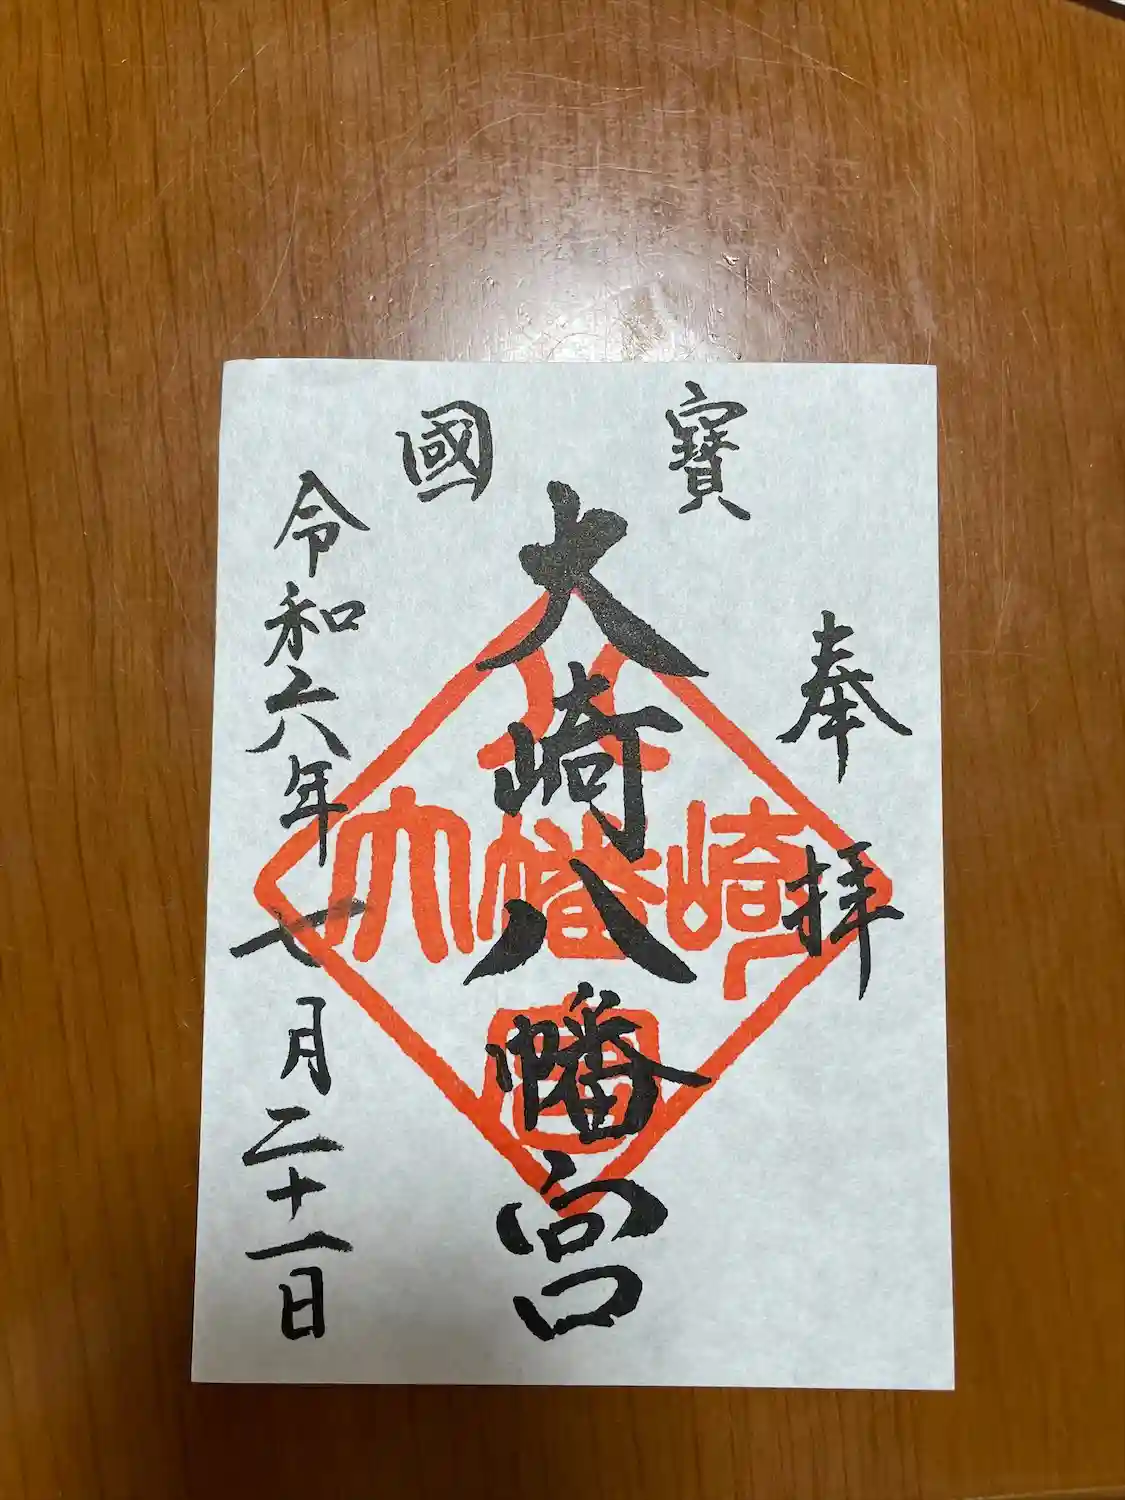 奉拝
寶
大崎八幡宮
國
令和六年七月二十一日
八
大幡崎
宮